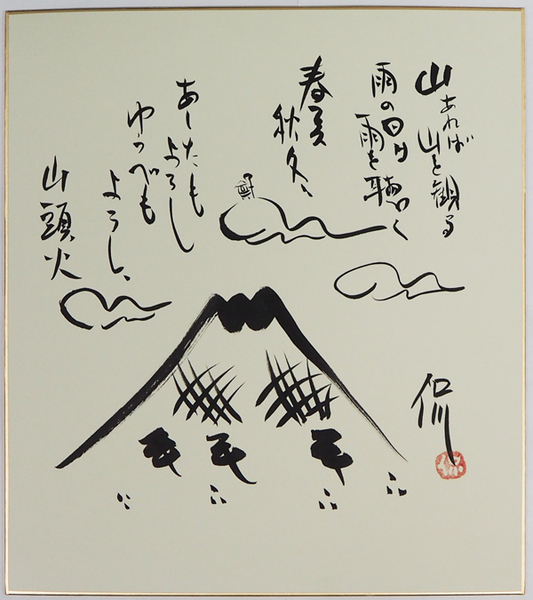 山あれば山を観る
雨の日は
雨を聴く
春夏
秋冬、
あしたも
よろし
ゆうべも
よろし、
山頭火
侃